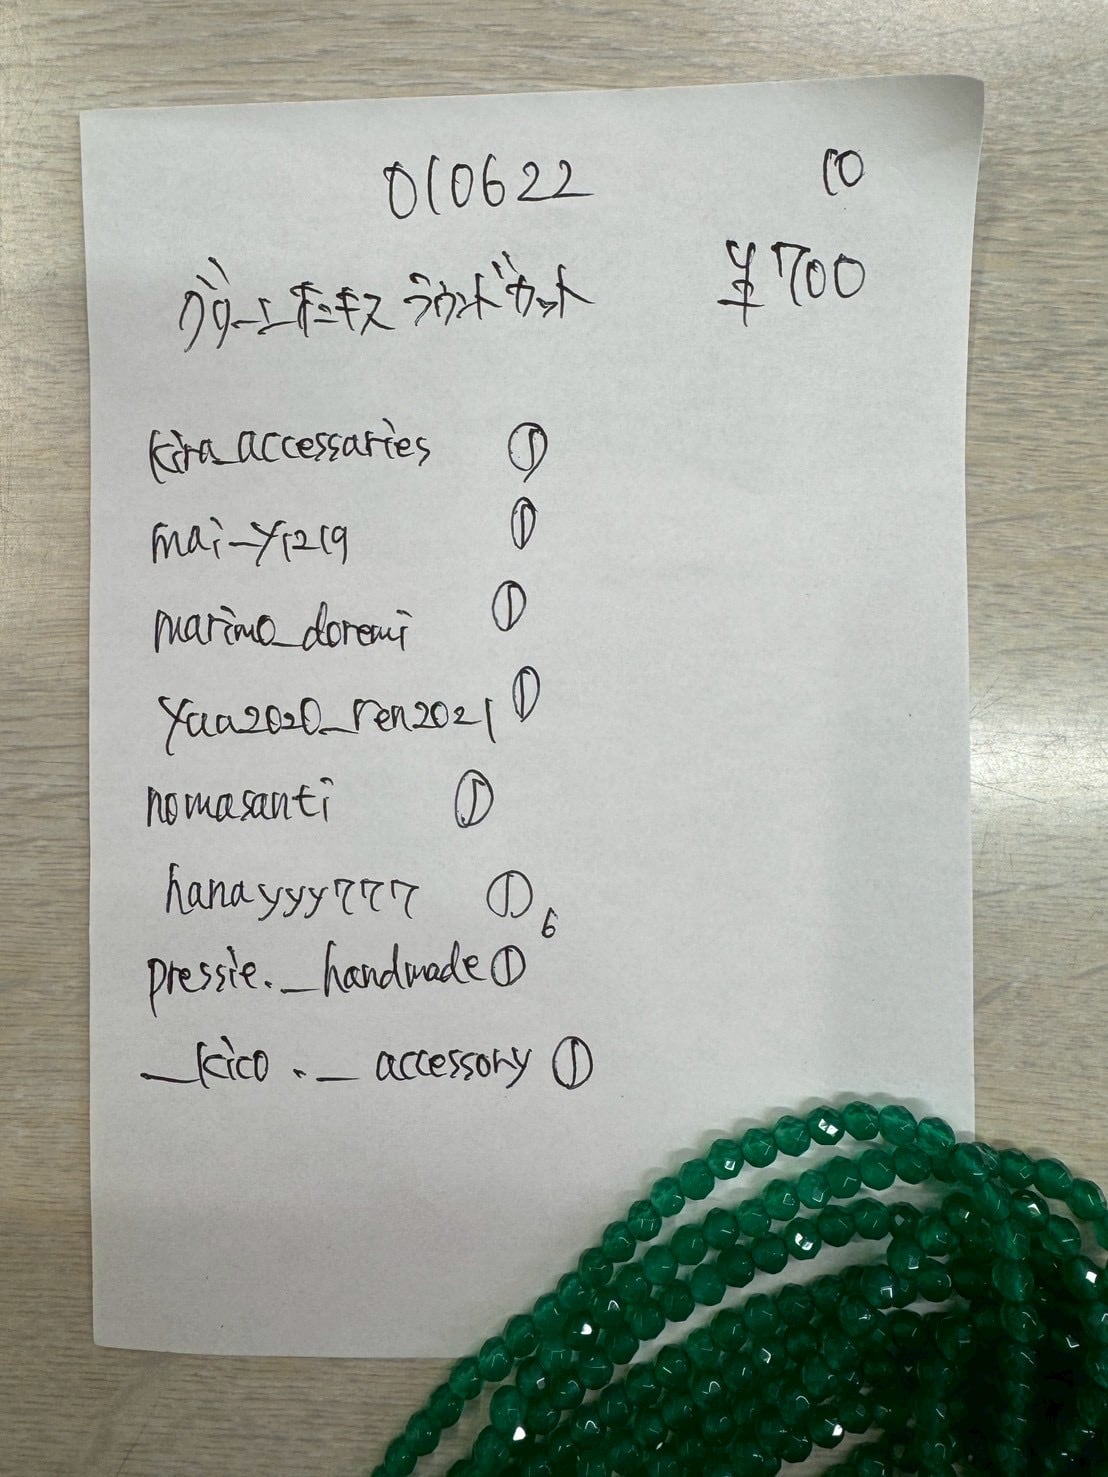 010622 10
グリーンオニキス ラウンドカット ¥700
kira_accessaries ①
mai_y1219 ①
marimo_doremi ①
yaa2020_ren2021 ①
nomasanti ①
hanayyy777 ① 6
pressie._handmade ①
_kico._accessory ①